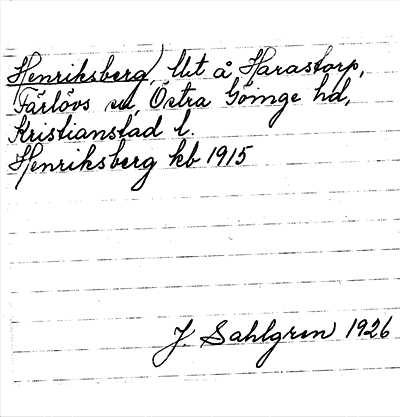 Henriksberg, lht å Harastorp,
Färlövs sn, Östra Göinge hd,
Kristianstad l.
Henriksberg kb 1915
J. Sahlgren 1926